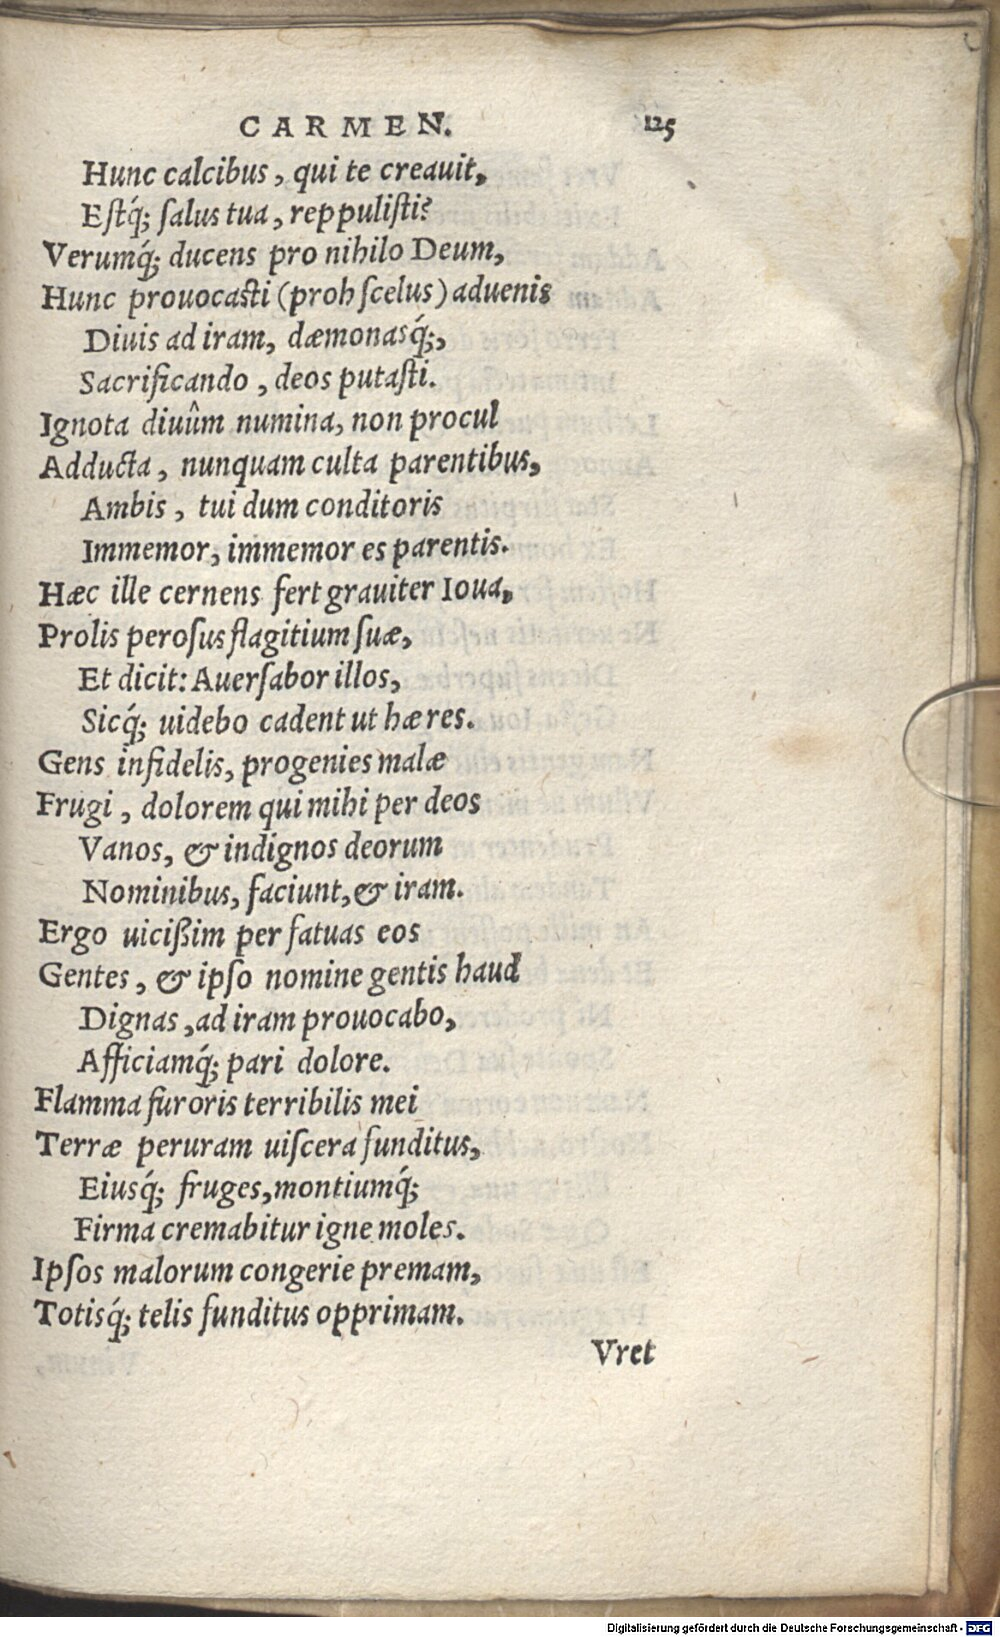 CARMEN. 125
Hunc calcibus, qui te creauit,
Eſtq́; ſalus tua, reppuliſti?
Verumq́; ducens pro nihilo Deum,
Hunc prouocaſti (proh ſcelus) aduenis
Diuis ad iram, dæmonasq́;,
Sacrificando, deos putaſti.
Ignota diuûm numina, non procul
Adducta, nunquam culta parentibus,
Ambis, tui dum conditoris
Immemor, immemor es parentis.
Hæc ille cernens fert grauiter Ioua,
Prolis peroſus flagitium ſuæ,
Et dicit: Auerſabor illos,
Sicq́; uidebo cadent ut hæres.
Gens infidelis, progenies malæ
Frugi, dolorem qui mihi per deos
Vanos, & indignos deorum
Nominibus, faciunt, & iram.
Ergo uicißim per fatuas eos
Gentes, & ipſo nomine gentis haud
Dignas, ad iram prouocabo,
Afficiamq́; pari dolore.
Flamma furoris terribilis mei
Terræ peruram uiſcera funditus,
Eiusq́; fruges, montiumq́;
Firma cremabitur igne moles.
Ipſos malorum congerie premam,
Totisq́; telis funditus opprimam.
Vret
Digitalisierung gefördert durch die Deutsche Forschungsgemeinschaft - DFG